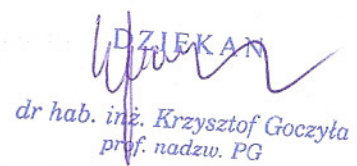 DZIEKAN
dr hab. inż. Krzysztof Goczyła
prof. nadzw. PG